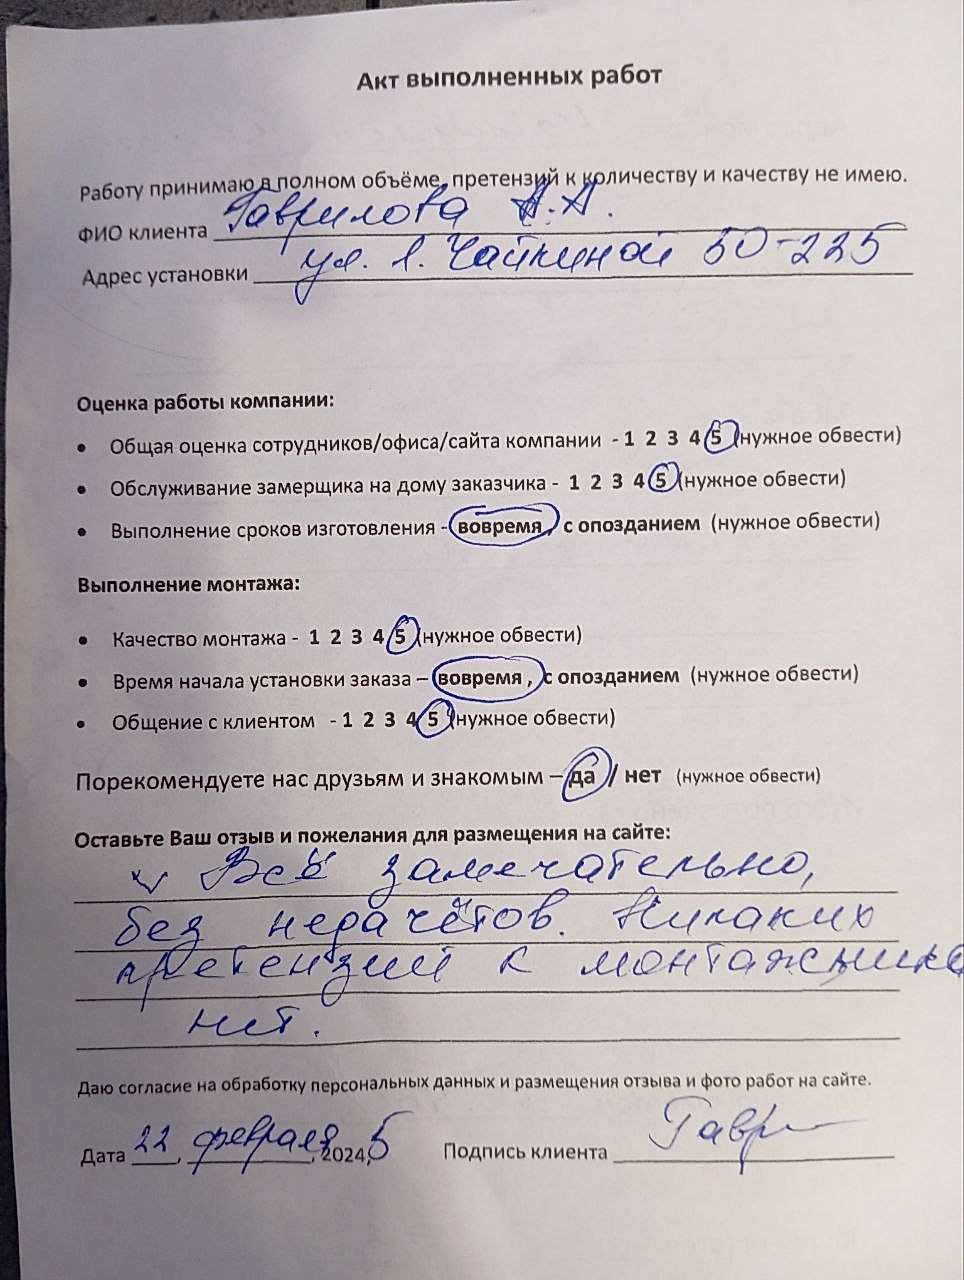 Акт выполненных работ
Работу принимаю в полном объёме, претензий к количеству и качеству не имею.
ФИО клиента Гаврилова А.А.
Адрес установки ул. Л. Чайкиной 50-225
Оценка работы компании:
• Общая оценка сотрудников/офиса/сайта компании - 1 2 3 4 5 (нужное обвести)
• Обслуживание замерщика на дому заказчика - 1 2 3 4 5 (нужное обвести)
• Выполнение сроков изготовления - вовремя, с опозданием (нужное обвести)
Выполнение монтажа:
• Качество монтажа - 1 2 3 4 5 (нужное обвести)
• Время начала установки заказа – вовремя, с опозданием (нужное обвести)
• Общение с клиентом - 1 2 3 4 5 (нужное обвести)
Порекомендуете нас друзьям и знакомым – да / нет (нужное обвести)
Оставьте Ваш отзыв и пожелания для размещения на сайте:
Всё замечательно,
без нерачётов. Никаких
претензий к
нет.
Даю согласие на обработку персональных данных и размещения отзыва и фото работ на сайте.
Дата 22, февраля, 2024,5 Подпись клиента Гавр